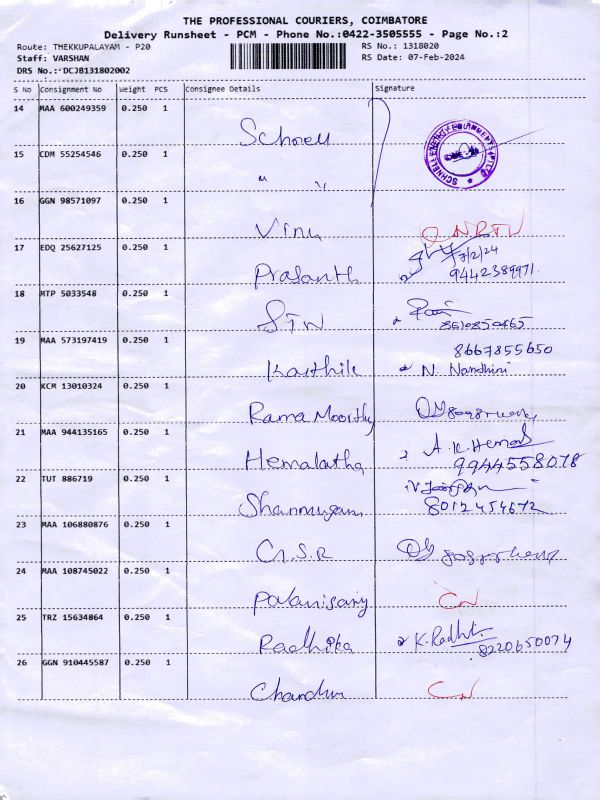 THE PROFESSIONAL COURIERS, COIMBATORE
Delivery Runsheet - PCM - Phone No.:0422-3505555 - Page No.:2
Route: THEKKUPALAYAM - P20
RS No.: 1318020
Staff: VARSHAN
RS Date: 07-Feb-2024
DRS No.: DCJB131802002
S No Consignment No Weight PCS Consignee Details Signature
14 MAA 600249359 0.250 1
Schnell
15 CDM 55254546 0.250 1
" "
16 GGN 98571097 0.250 1
Vinu
17 EDQ 25627125 0.250 1
7/2/24
Prasanth 9442389971
18 MTP 5033548 0.250 1
STN 8610850465
19 MAA 573197419 0.250 1
8667855650
Karthik N. Nandhini
20 KCM 13010324 0.250 1
Rama Moorthy
21 MAA 944135165 0.250 1
A.K.Hema
Hemalatha 9944558078
22 TUT 886719 0.250 1
Shanmugam 8012454672
23 MAA 106880876 0.250 1
G.S.R
24 MAA 108745022 0.250 1
Palanisamy CN
25 TRZ 15634864 0.250 1
Radhika K.Radhi 8220650074
26 GGN 910445587 0.250 1
Chandru CN